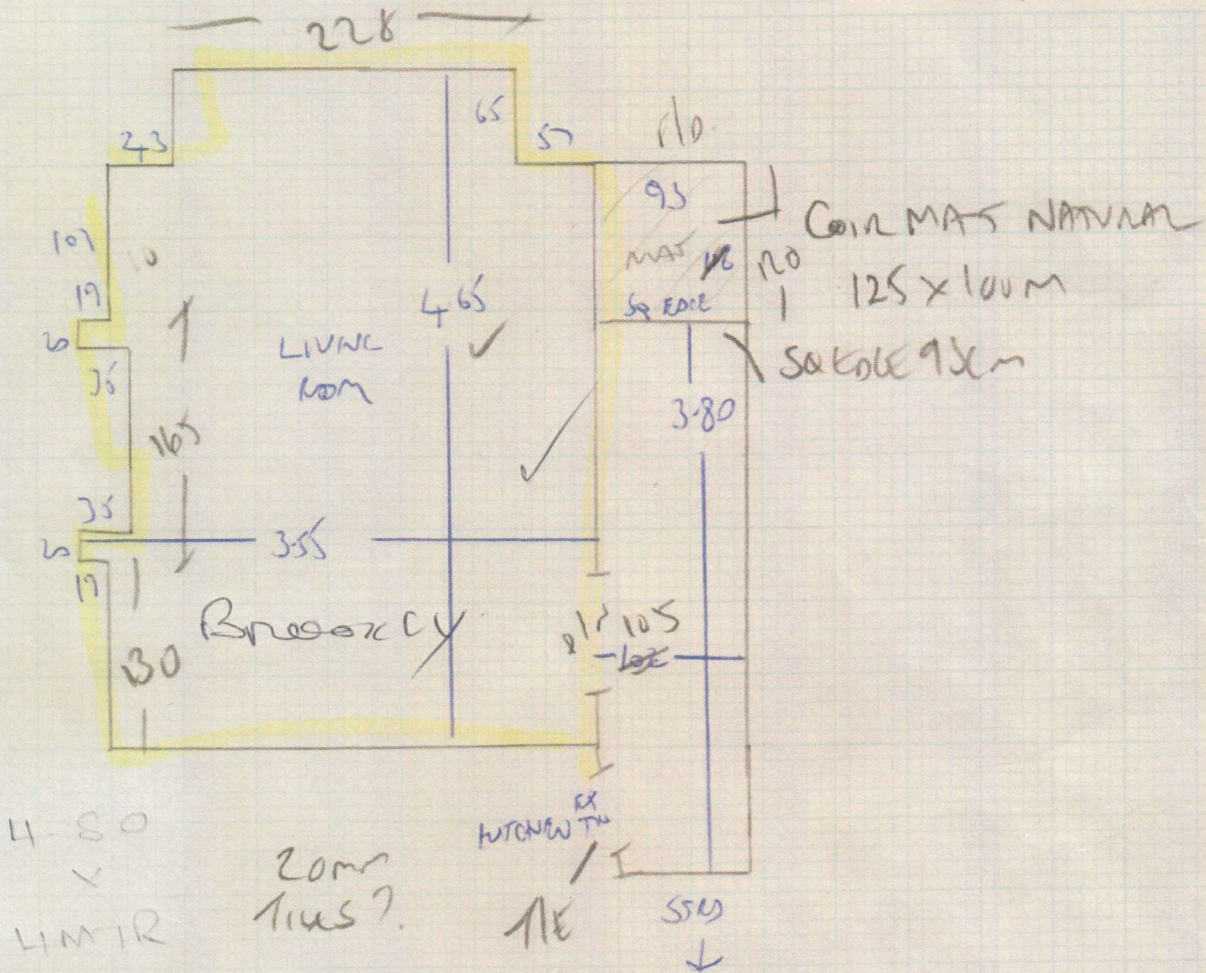 228
65
57
F/D.
43
93
COIR MAT NATURAL
MAT
120
125 x 100m
SQ EDGE
SQ EDGE 93cm
107
10
19
20
35
4.65
LIVING
ROOM
165
3.80
35
20
3.55
19
105
130
KITCHEN
EX
TN
4 50
x
4MTR
20mm
TILES?
T/E
STRS